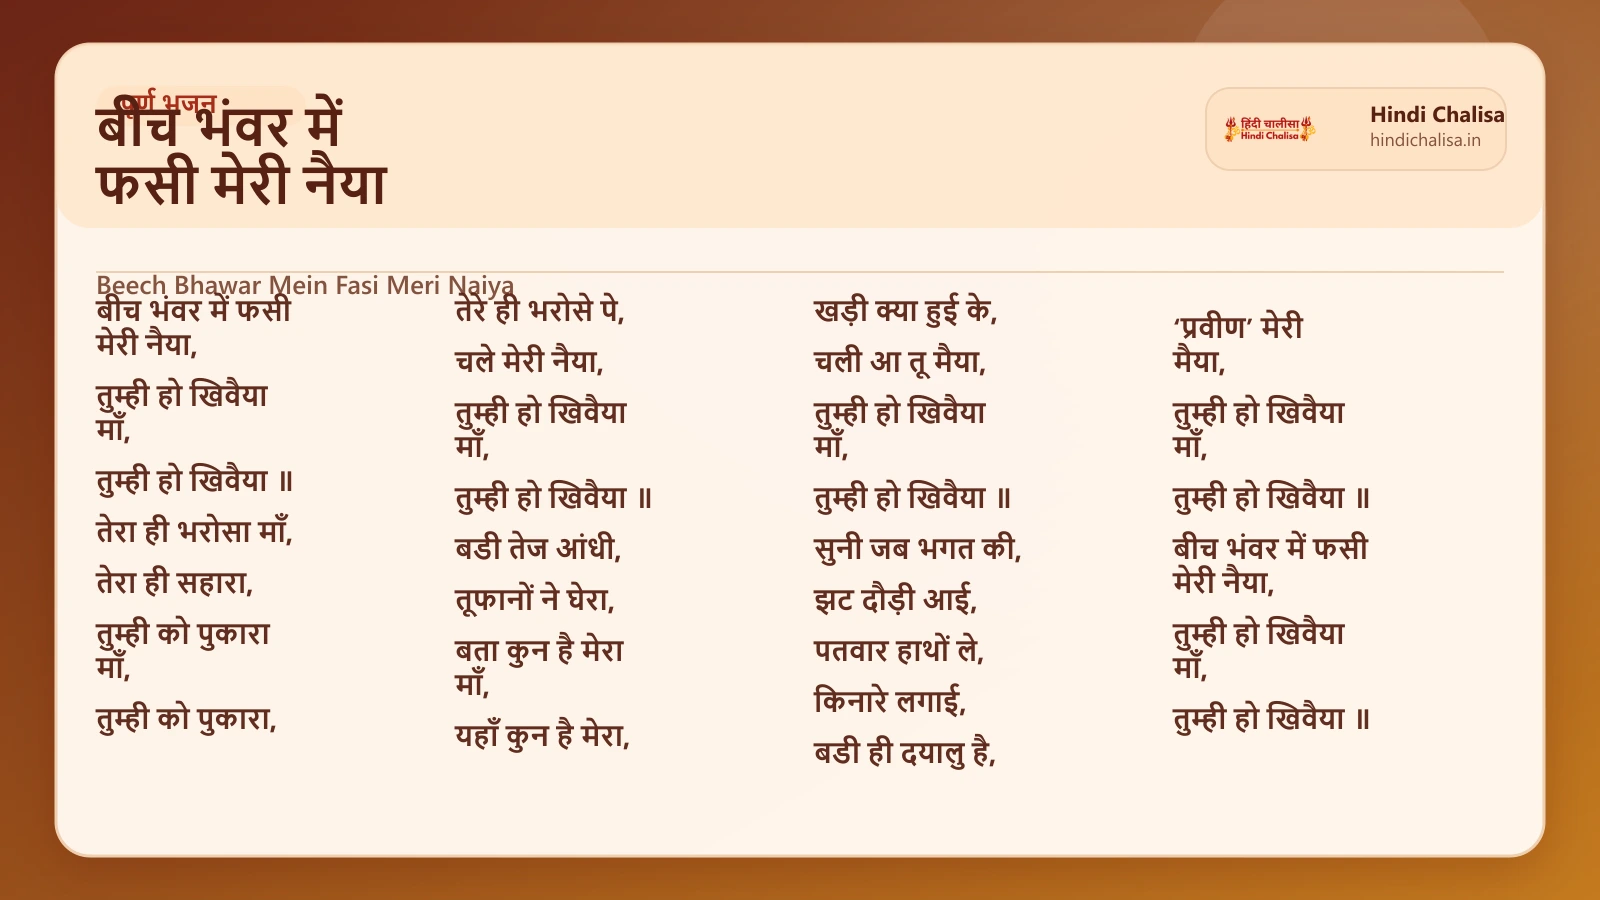 पूर्ण भजन
बीच भंवर में
फसी मेरी नैया
हिंदी चालीसा
Hindi Chalisa
Hindi Chalisa
hindichalisa.in
Beech Bhawar Mein Fasi Meri Naiya
बीच भंवर में फसी
मेरी नैया,
तुम्ही हो खिवैया
माँ,
तुम्ही हो खिवैया ॥
तेरा ही भरोसा माँ,
तेरा ही सहारा,
तुम्ही को पुकारा
माँ,
तुम्ही को पुकारा,
तेरे ही भरोसे पे,
चले मेरी नैया,
तुम्ही हो खिवैया
माँ,
तुम्ही हो खिवैया ॥
बडी तेज आंधी,
तूफानों ने घेरा,
बता कुन है मेरा
माँ,
यहाँ कुन है मेरा,
खड़ी क्या हुई के,
चली आ तू मैया,
तुम्ही हो खिवैया
माँ,
तुम्ही हो खिवैया ॥
सुनी जब भगत की,
झट दौड़ी आई,
पतवार हाथों ले,
किनारे लगाई,
बडी ही दयालु है,
‘प्रवीण’ मेरी
मैया,
तुम्ही हो खिवैया
माँ,
तुम्ही हो खिवैया ॥
बीच भंवर में फसी
मेरी नैया,
तुम्ही हो खिवैया
माँ,
तुम्ही हो खिवैया ॥